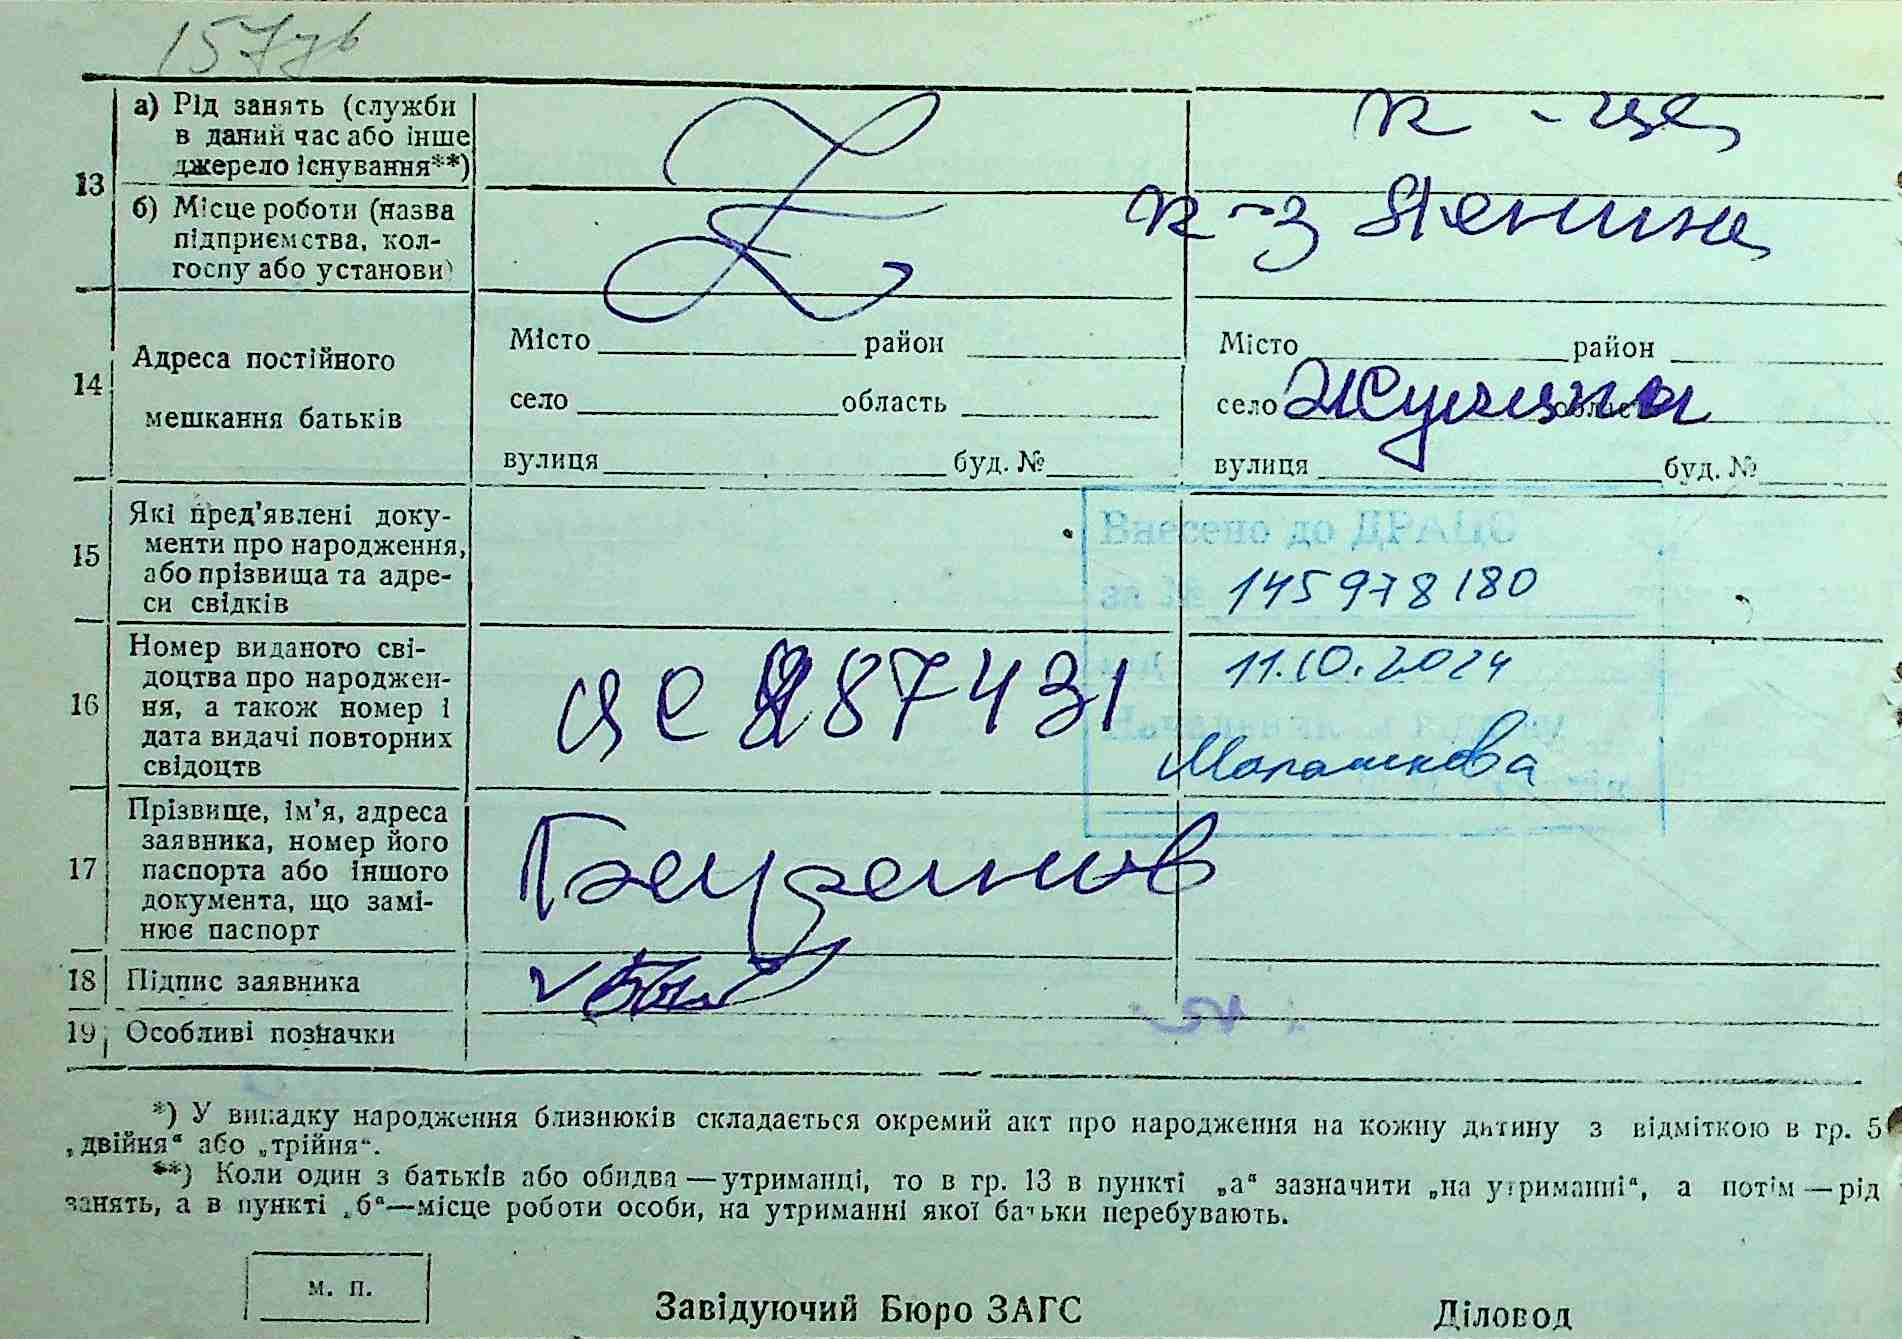 157
13 а) Рід занять (служби в даний час або інше джерело існування**)
к-ця
б) Місце роботи (назва підприємства, колгоспу або установи)
к-з Леніна
14 Адреса постійного мешкання батьків
Місто район
село область
вулиця буд. №
Місто район
село Жуляни область
вулиця буд. №
15 Які пред'явлені документи про народження, або прізвища та адреси свідків
Внесено до ДРАЦС
за № 145978180
16 Номер виданого свідоцтва про народження, а також номер і дата видачі повторних свідоцтв
287431
11.10.2024
17 Прізвище, ім'я, адреса заявника, номер його паспорта або іншого документа, що замінює паспорт
18 Підпис заявника
19 Особливі позначки
*) У випадку народження близнюків складається окремий акт про народження на кожну дитину з відміткою в гр. 5
„двійня“ або „трійня“.
**) Коли один з батьків або обидва — утриманці, то в гр. 13 в пункті „а“ зазначити „на утриманні“, а потім — рід
занять, а в пункті „б“—місце роботи особи, на утриманні якої батьки перебувають.
м. п.
Завідуючий Бюро ЗАГС Діловод